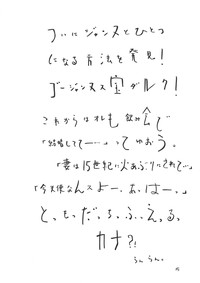 ついにジャンヌとひとつ
になる方法を発見！
ゴージャンヌス宝ダルク！
これからはオレも飲み会で
「結婚してて……」ってゆおう。
「妻は15世紀に火あぶりにされて…」
「今天使なんスよー、あ、はー。」
と、も、だ、ち、ふ、え、る、
カナ？！
らん らん。